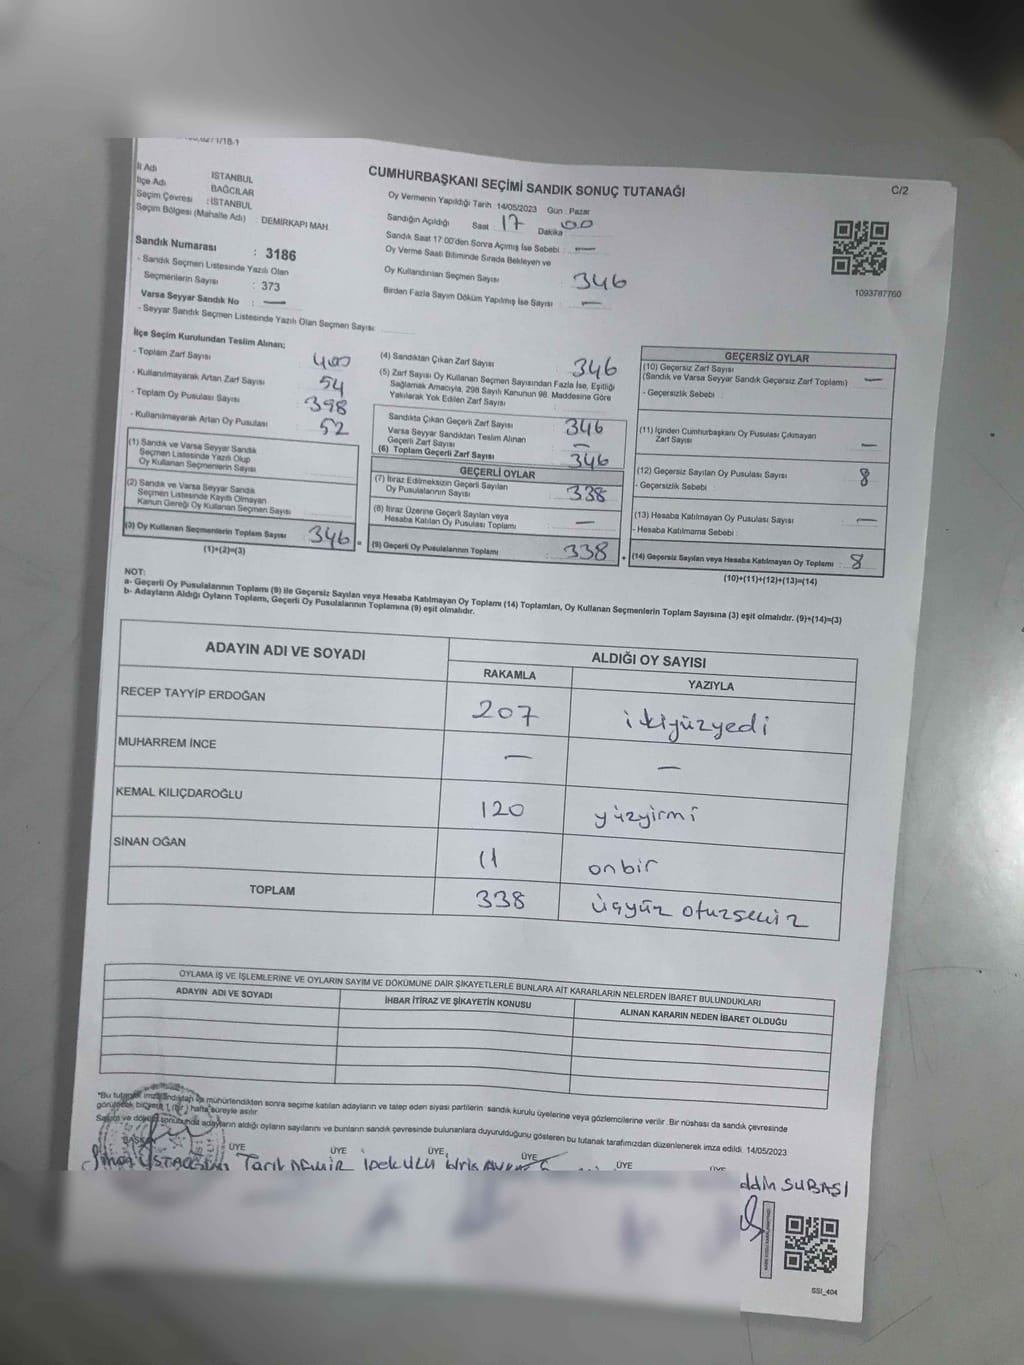 CUMHURBAŞKANI SEÇİMİ SANDIK SONUÇ TUTANAĞI
C/2
İl Adı İSTANBUL
İlçe Adı BAĞCILAR
Seçim Çevresi : İSTANBUL
Seçim Bölgesi (Mahalle Adı) : DEMİRKAPI MAH.
Sandık Numarası : 3186
- Sandık Seçmen Listesinde Yazılı Olan
Seçmenlerin Sayısı : 373
Varsa Seyyar Sandık No : —
- Seyyar Sandık Seçmen Listesinde Yazılı Olan Seçmen Sayısı:
Oy Vermenin Yapıldığı Tarih 14/05/2023 Gün : Pazar
Sandığın Açıldığı Saat 17 Dakika 00
Sandık Saat 17:00'den Sonra Açımış İse Sebebi : —
Oy Verme Saati Bitiminde Sırada Bekleyen ve
Oy Kullandırılan Seçmen Sayısı 346
Birden Fazla Sayım Döküm Yapılmış İse Sayısı : —
1093787760
İlçe Seçim Kurulundan Teslim Alınan;
- Toplam Zarf Sayısı 400
- Kullanılmayarak Artan Zarf Sayısı 54
- Toplam Oy Pusulası Sayısı 398
- Kullanılmayarak Artan Oy Pusulası 52
(1) Sandık ve Varsa Seyyar Sandık
Seçmen Listesinde Yazılı Olup
Oy Kullanan Seçmenlerin Sayısı :
(2) Sandık ve Varsa Seyyar Sandık
Seçmen Listesinde Kayıtlı Olmayan
Kanun Gereği Oy Kullanan Seçmen Sayısı :
(3) Oy Kullanan Seçmenlerin Toplam Sayısı : 346
(1)+(2)=(3)
(4) Sandıktan Çıkan Zarf Sayısı 346
(5) Zarf Sayısı Oy Kullanan Seçmen Sayısından Fazla İse, Eşitliği
Sağlamak Amacıyla, 298 Sayılı Kanunun 98. Maddesine Göre
Yakılarak Yok Edilen Zarf Sayısı :
Sandıkta Çıkan Geçerli Zarf Sayısı 346
Varsa Seyyar Sandıktan Teslim Alınan
Geçerli Zarf Sayısı —
(6) Toplam Geçerli Zarf Sayısı 346
GEÇERLİ OYLAR
(7) İtiraz Edilmeksizin Geçerli Sayılan
Oy Pusulalarının Sayısı : 338
(8) İtiraz Üzerine Geçerli Sayılan veya
Hesaba Katılan Oy Pusulası Toplamı : —
(9) Geçerli Oy Pusulalarının Toplamı : 338
GEÇERSİZ OYLAR
(10) Geçersiz Zarf Sayısı
(Sandık ve Varsa Seyyar Sandık Geçersiz Zarf Toplamı) —
- Geçersizlik Sebebi :
(11) İçinden Cumhurbaşkanı Oy Pusulası Çıkmayan
Zarf Sayısı —
(12) Geçersiz Sayılan Oy Pusulası Sayısı 8
- Geçersizlik Sebebi :
(13) Hesaba Katılmayan Oy Pusulası Sayısı —
- Hesaba Katılmama Sebebi :
(14) Geçersiz Sayılan veya Hesaba Katılmayan Oy Toplamı : 8
(10)+(11)+(12)+(13)=(14)
NOT:
a- Geçerli Oy Pusulalarının Toplamı (9) ile Geçersiz Sayılan veya Hesaba Katılmayan Oy Toplamı (14) Toplamları, Oy Kullanan Seçmenlerin Toplam Sayısına (3) eşit olmalıdır. (9)+(14)=(3)
b- Adayların Aldığı Oyların Toplamı, Geçerli Oy Pusulalarının Toplamına (9) eşit olmalıdır.
ADAYIN ADI VE SOYADI ALDIĞI OY SAYISI
RAKAMLA YAZIYLA
RECEP TAYYİP ERDOĞAN 207 ikiyüzyedi
MUHARREM İNCE — —
KEMAL KILIÇDAROĞLU 120 yüzyirmi
SİNAN OĞAN 11 onbir
TOPLAM 338 üçyüz otuzsekiz
OYLAMA İŞ VE İŞLEMLERİNE VE OYLARIN SAYIM VE DÖKÜMÜNE DAİR ŞİKAYETLERLE BUNLARA AİT KARARLARIN NELERDEN İBARET BULUNDUKLARI
ADAYIN ADI VE SOYADI İHBAR İTİRAZ VE ŞİKAYETİN KONUSU ALINAN KARARIN NEDEN İBARET OLDUĞU
*Bu tutanak imzalandıktan ve mühürlendikten sonra seçime katılan adayların ve talep eden siyasi partilerin sandık kurulu üyelerine veya gözlemcilerine verilir. Bir nüshası da sandık çevresinde
görülecek bir yere 1 (bir) hafta süreyle asılır.
Sayım ve döküm sonubunda adayların aldığı oyların sayılarını ve bunların sandık çevresinde bulunanlara duyurulduğunu gösteren bu tutanak tarafımızdan düzenlenerek imza edildi. 14/05/2023
BAŞKAN ÜYE ÜYE ÜYE ÜYE ÜYE
Tarık DEMİR İpek ULU İdris
ddin SUBAŞI
SSI_404